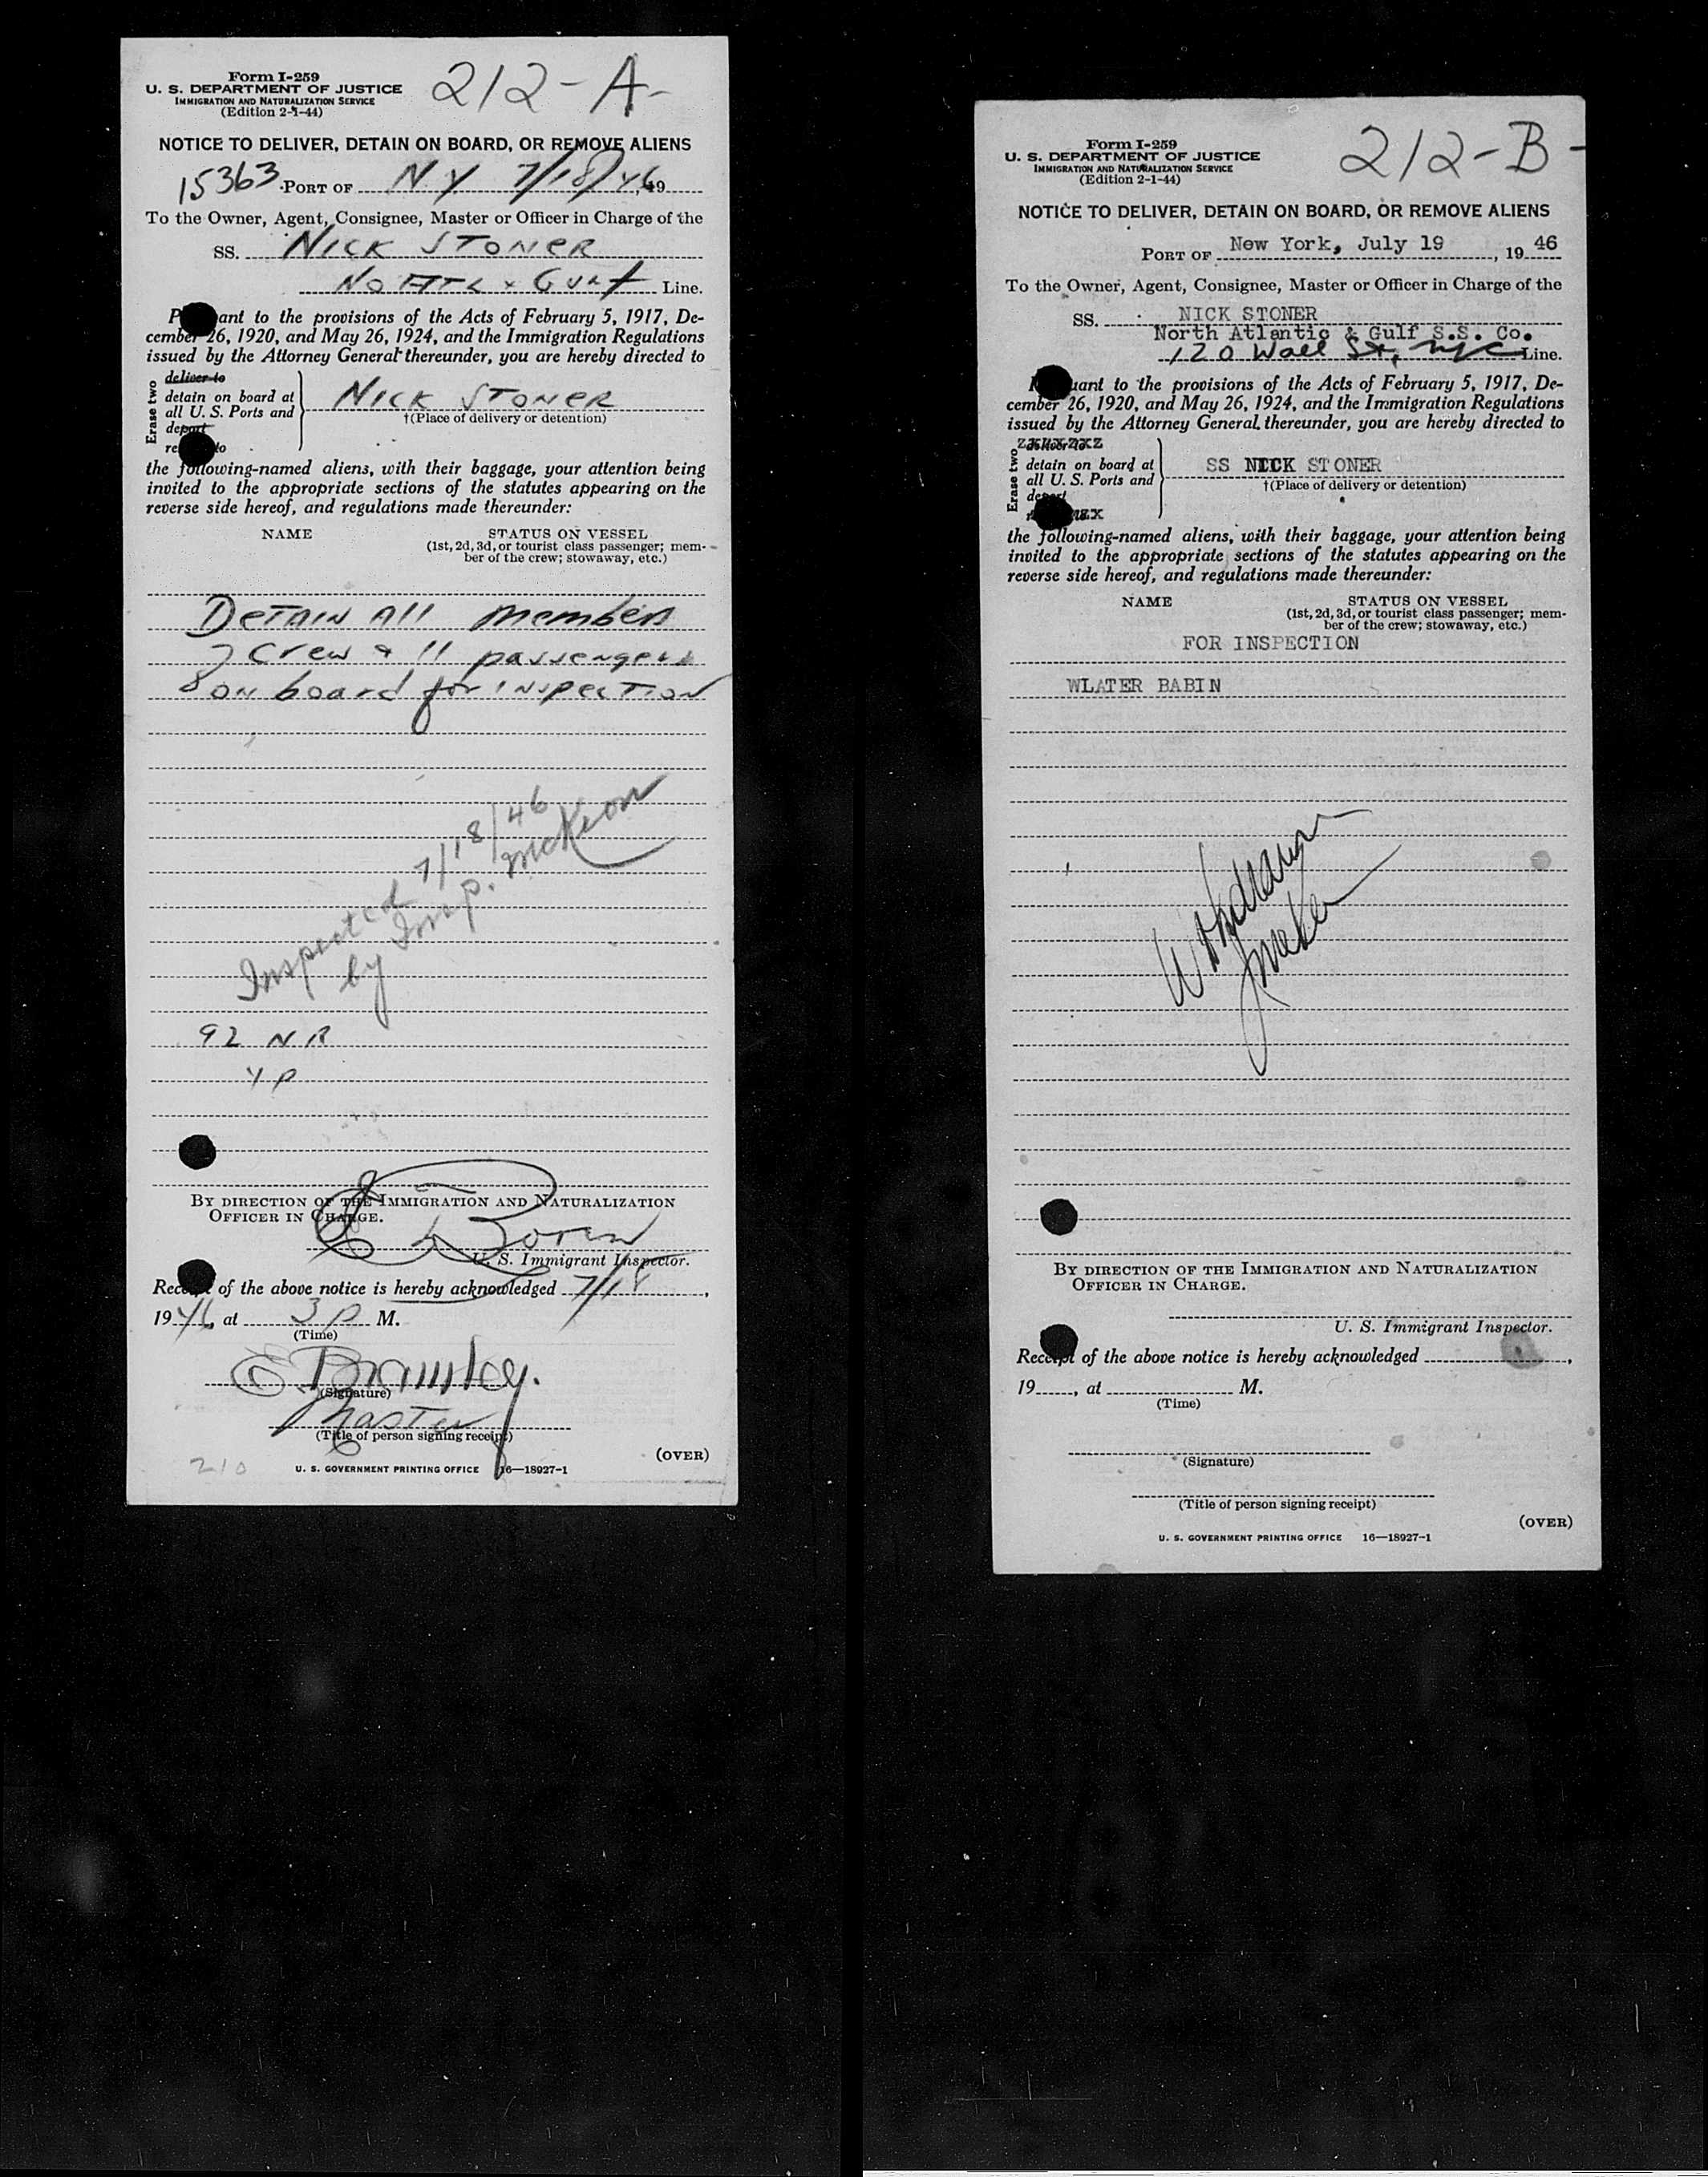 Form I-259
U. S. DEPARTMENT OF JUSTICE
IMMIGRATION AND NATURALIZATION SERVICE
(Edition 2-1-44)
212-A-
NOTICE TO DELIVER, DETAIN ON BOARD, OR REMOVE ALIENS
15363 PORT OF NY 7/18/46, 19
To the Owner, Agent, Consignee, Master or Officer in Charge of the
SS. NICK STONER
No ATL & Gulf Line.
ant to the provisions of the Acts of February 5, 1917, De-
cember 26, 1920, and May 26, 1924, and the Immigration Regulations
issued by the Attorney General thereunder, you are hereby directed to
Erase two
deliver to
detain on board at
all U. S. Ports and
deport
NICK STONER
†(Place of delivery or detention)
the following-named aliens, with their baggage, your attention being
invited to the appropriate sections of the statutes appearing on the
reverse side hereof, and regulations made thereunder:
NAME
STATUS ON VESSEL
(1st, 2d, 3d, or tourist class passenger; mem-
ber of the crew; stowaway, etc.)
DETAIN All members
of Crew & 11 passengers
on board for INSPECTION
Inspected 7/18/46
by Insp. McKeon
92 NR
4 P
BY DIRECTION OF THE IMMIGRATION AND NATURALIZATION
OFFICER IN CHARGE.
U. S. Immigrant Inspector.
Receipt of the above notice is hereby acknowledged 7/18,
1946, at 3 P M.
(Time)
E. Bramley.
(Signature)
Master
(Title of person signing receipt)
(OVER)
210
U. S. GOVERNMENT PRINTING OFFICE 16—18927-1
Form I-259
U. S. DEPARTMENT OF JUSTICE
IMMIGRATION AND NATURALIZATION SERVICE
(Edition 2-1-44)
212-B-
NOTICE TO DELIVER, DETAIN ON BOARD, OR REMOVE ALIENS
PORT OF New York, July 19, 19 46
To the Owner, Agent, Consignee, Master or Officer in Charge of the
SS. NICK STONER
North Atlantic & Gulf S.S. Co.
120 Wall St, NYC Line.
uant to the provisions of the Acts of February 5, 1917, De-
cember 26, 1920, and May 26, 1924, and the Immigration Regulations
issued by the Attorney General thereunder, you are hereby directed to
Erase two
deliver to
detain on board at
all U. S. Ports and
deport
SS NICK STONER
†(Place of delivery or detention)
the following-named aliens, with their baggage, your attention being
invited to the appropriate sections of the statutes appearing on the
reverse side hereof, and regulations made thereunder:
NAME
STATUS ON VESSEL
(1st, 2d, 3d, or tourist class passenger; mem-
ber of the crew; stowaway, etc.)
FOR INSPECTION
WLATER BABIN
Withdrawn
BY DIRECTION OF THE IMMIGRATION AND NATURALIZATION
OFFICER IN CHARGE.
U. S. Immigrant Inspector.
Receipt of the above notice is hereby acknowledged ,
19 , at M.
(Time)
(Signature)
(Title of person signing receipt)
(OVER)
U. S. GOVERNMENT PRINTING OFFICE 16—18927-1